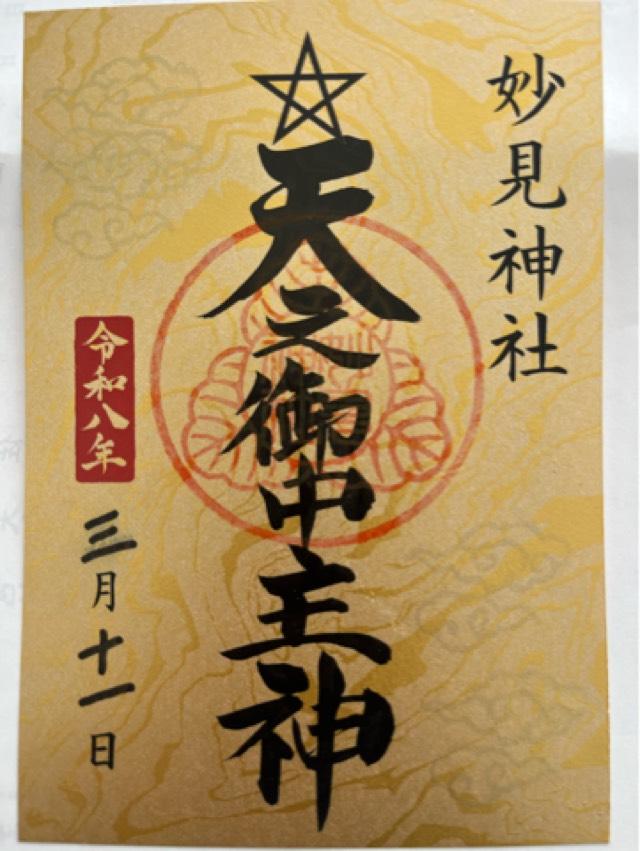 妙見神社
天之御中主神
令和八年
三月十一日